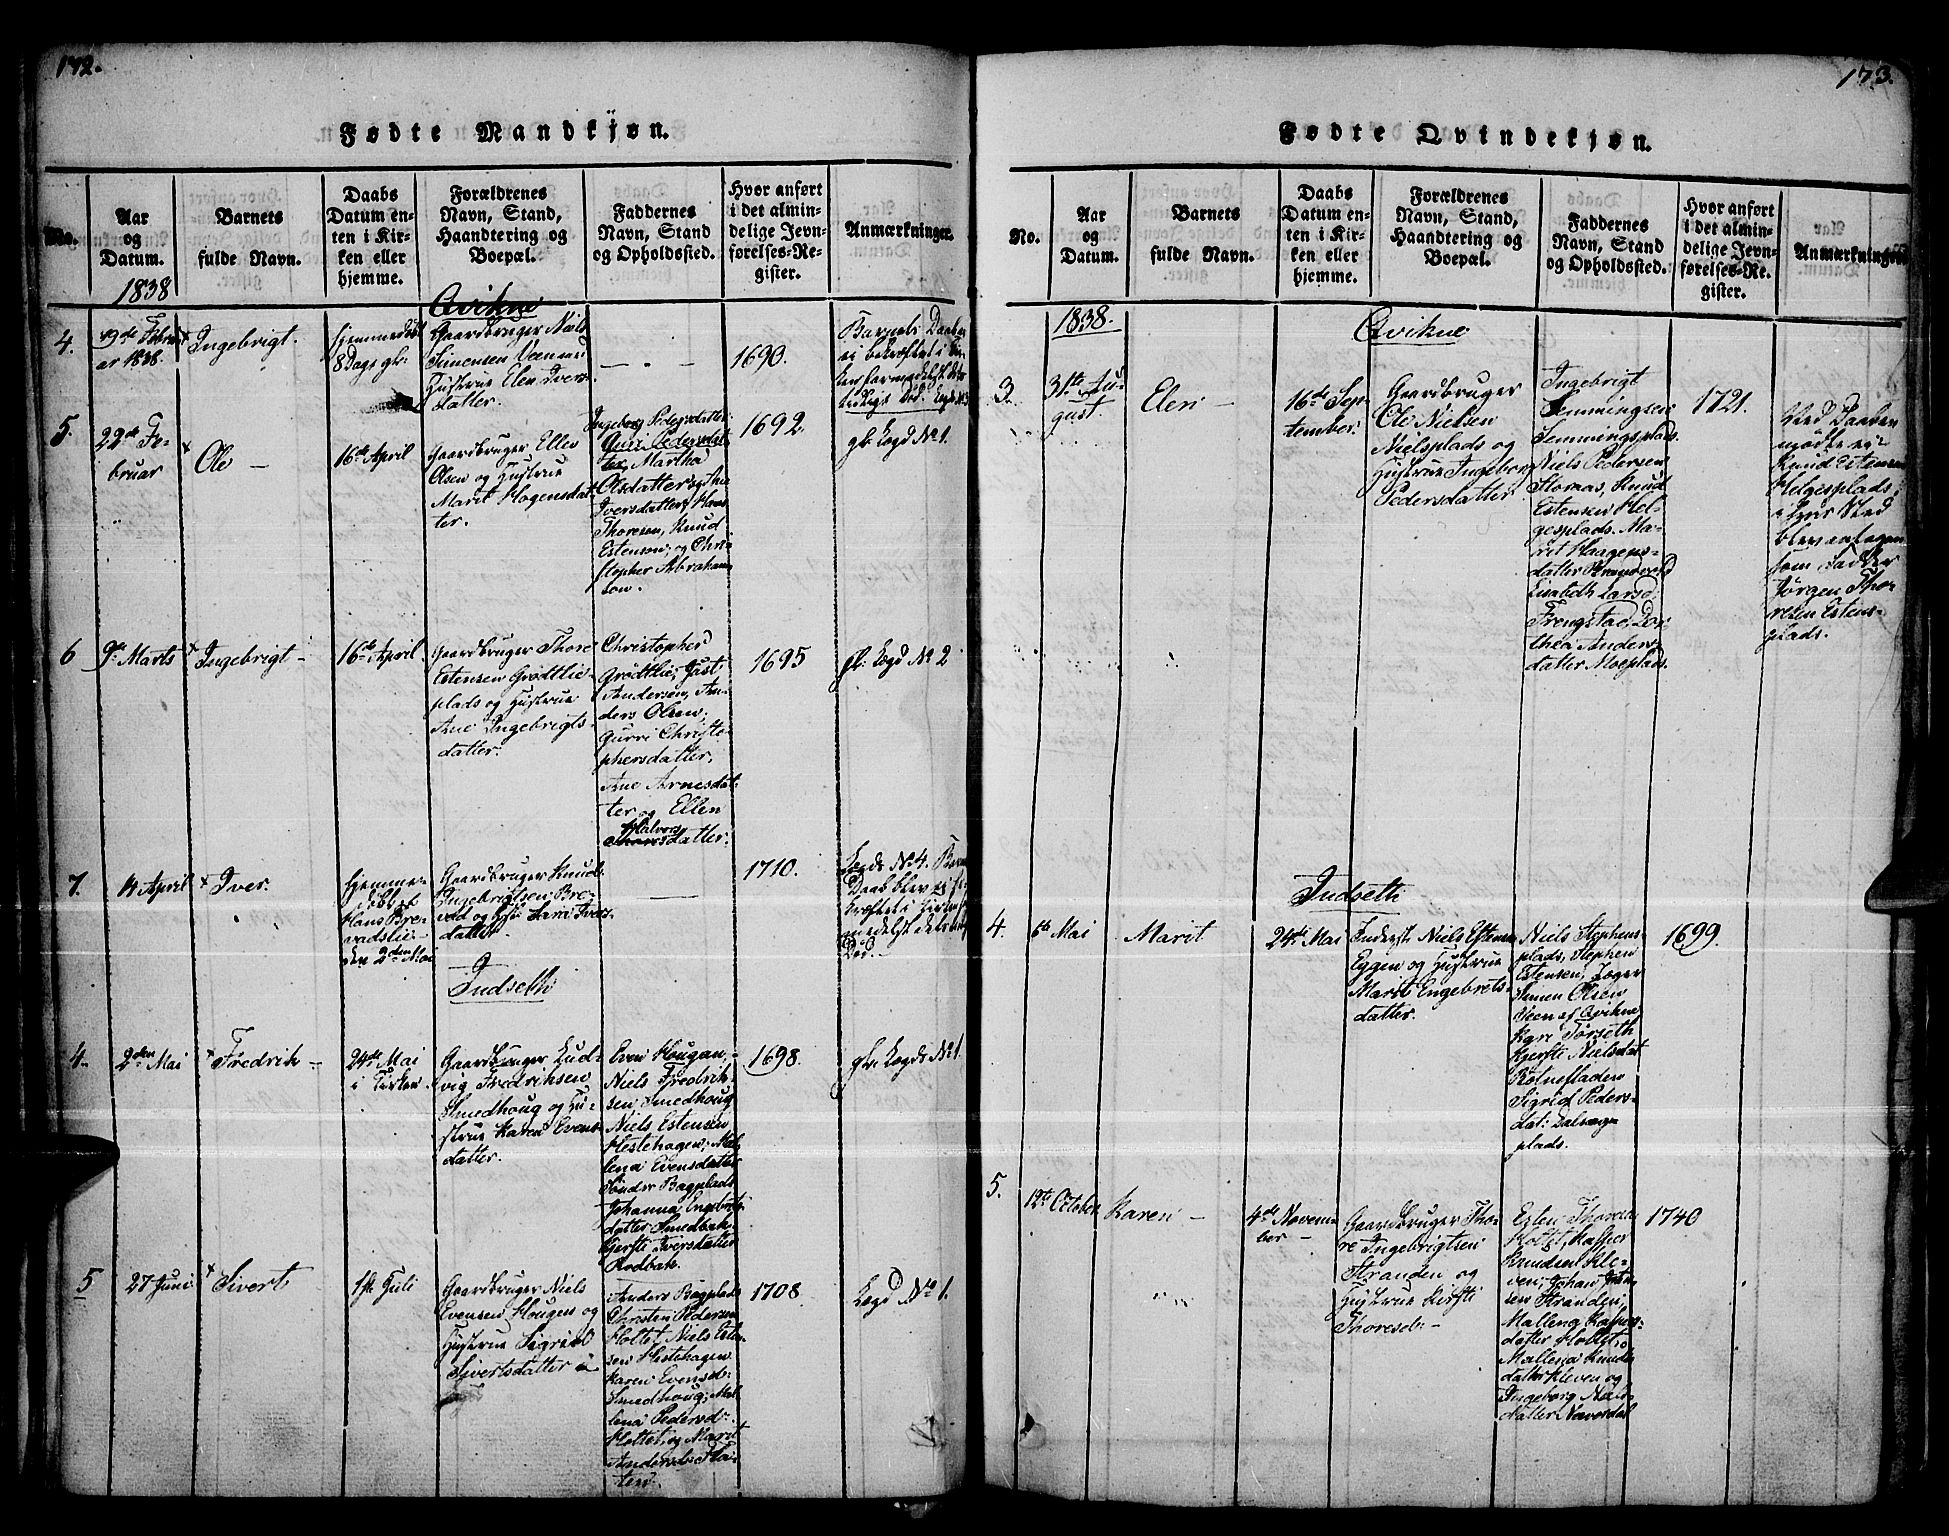 172.
Fødte Mandkjøn.
No.
Aar
og
Datum.
1838
Barnets
fulde Navn.
Daabs
Datum en-
ten i Kir-
ken eller
hjemme.
Forældrenes
Navn, Stand,
Haandtering og
Boepæl.
Faddernes
Navn, Stand
og Opholdssted.
Hvor anført
i det almin-
delige Jevn-
førelses-Re-
gister.
Anmærkninger.
Qvikne
4.
19de Febru-
ar 1838.
Ingebrigt.
hjemmedøbt
8 Dage gl.
Gaardbruger Niels
Simensen Veen
Hustrue Elen Ivers-
datter.
1690.
Barnets Daab
ei bekræftet i
5.
22de Fe-
bruar
Ole
16de April
Gaardbruger Ellev
Olsen og Hustrue
Marit Hogensdat-
ter.
Ingeborg Pedersdatter
Guri Pedersdat-
ter, Martha
Olsdatter
Iversdatter, Hans
Thoresen, Knud
Estensen, og Chri-
stopher Abraham-
sen.
1692.
gl. Lægd No 1.
6
9de Marts
Ingebrigt
16de April
Gaardbruger Thore
Estensen Grødtlie-
plads og Hustrue
Ane Ingebrigts-
datter.
Christopher
Grødtlie, Just
Andersen, An-
ders Olsen,
Gurri Christo-
phersdatter,
Ane Arnesdat-
ter og Ellen
Halvors
Thoresdatter.
1695
gl. Lægd No 2
7.
14 April
Iver.
hjemme-
døbt af
Hans Bre-
vadslie
den 2den Mai
Gaardbruger Knud
Ingebrigtsen Bre-
vad og Hu: Kari Ivers-
datter
1710.
Lægds No 4.
Daab blev ei
kræftet i Kirken
Død.
Indseth
4.
2den Mai
Fredrik
24de Mai
i Kirken
Gaardbruger Lud-
vig Fredriksen
Smedhoug og Hu-
strue Karen Evens-
datter.
Even Hougan,
Niels Fredrik-
sen Smedhoug
Niels Estensen
Hestehagen, Ma-
lena Evensdatter
Sønder Bagplads
Johanna Engebrets-
datter Smedbak.
Gjertie Iversdatter
Rodbak.
1698.
gl. Lægds No 1.
5
27 Juni
Sivert
1ste Juli
Gaardbruger Niels
Evensen Hougen og
Hustrue Sigrid
Sivertsdatter
Anders Bagplads
Christen Pedersen
Hottet, Niels Esten-
sen Hestehagen
Karen Evensd:
Smedhoug, Ma-
lena Pedersd:
Hottet, og Marit
Andersd: Fló-
ten.
1708
Lægd No 1.
173.
Fødte Qvindekjøn.
No.
Aar
og
Datum.
Barnets
fulde Navn.
Daabs
Datum en-
ten i Kir-
ken eller
hjemme.
Forældrenes
Navn, Stand,
Haandtering og
Boepæl.
Faddernes
Navn, Stand
og Opholdssted.
Hvor anført
i det almin-
delige Jevn-
førelses-Re-
gister.
Anmærkninger
1838.
Qvikne
3.
31te Au-
gust
Elen
16de Sep-
tember.
Gaardbruger
Ole Nielsen
Nielsplads og
Hustrue Ingeborg
Pedersdatter
Ingebrigt
Semmingsen
Semmingsplads.
Niels Pedersen
Stomas, Knud
Estensen Hel-
gesplads. Ma-
rit Haagens-
datter
Elisabeth Larsd:
Frengstad, Do-
thea Anders-
datter Moeplads.
1721.
Ved Daaben
mødte ei
Knud Estensen
Helgesplads,
i hvis Sted
blev antagen
som Fadder
Jørgen Tho-
resen Estens-
plads.
Indseth
4.
6te Mai
Marit
24de Mai
Inderst Niels Estensen
Eggen og Hustrue
Marit Engebrets-
datter.
Niels Stephens-
plads, Stephen
Estensen, Jæger
Simen Olsen
Veen af Qvikne
Kari Torseth
Gjertie Nielsdat
Rotnefladen
Sigrid Peders-
dat:
plads.
1699.
5.
12te October
Karen
4de Novem-
ber
Gaardbruger Tho-
re Ingebrigtsen
Stranden og
Hustrue Kirsti
Thoresd:
Esten Thoresen
Hottet, Kasper
Knudsen Kle-
ven, Johan
sen Stranden,
Malleng Kaspers-
datter Hottet,
Mallena Knuds-
datter Kleven og
Ingeborg Niels-
datter Næverdal
1740